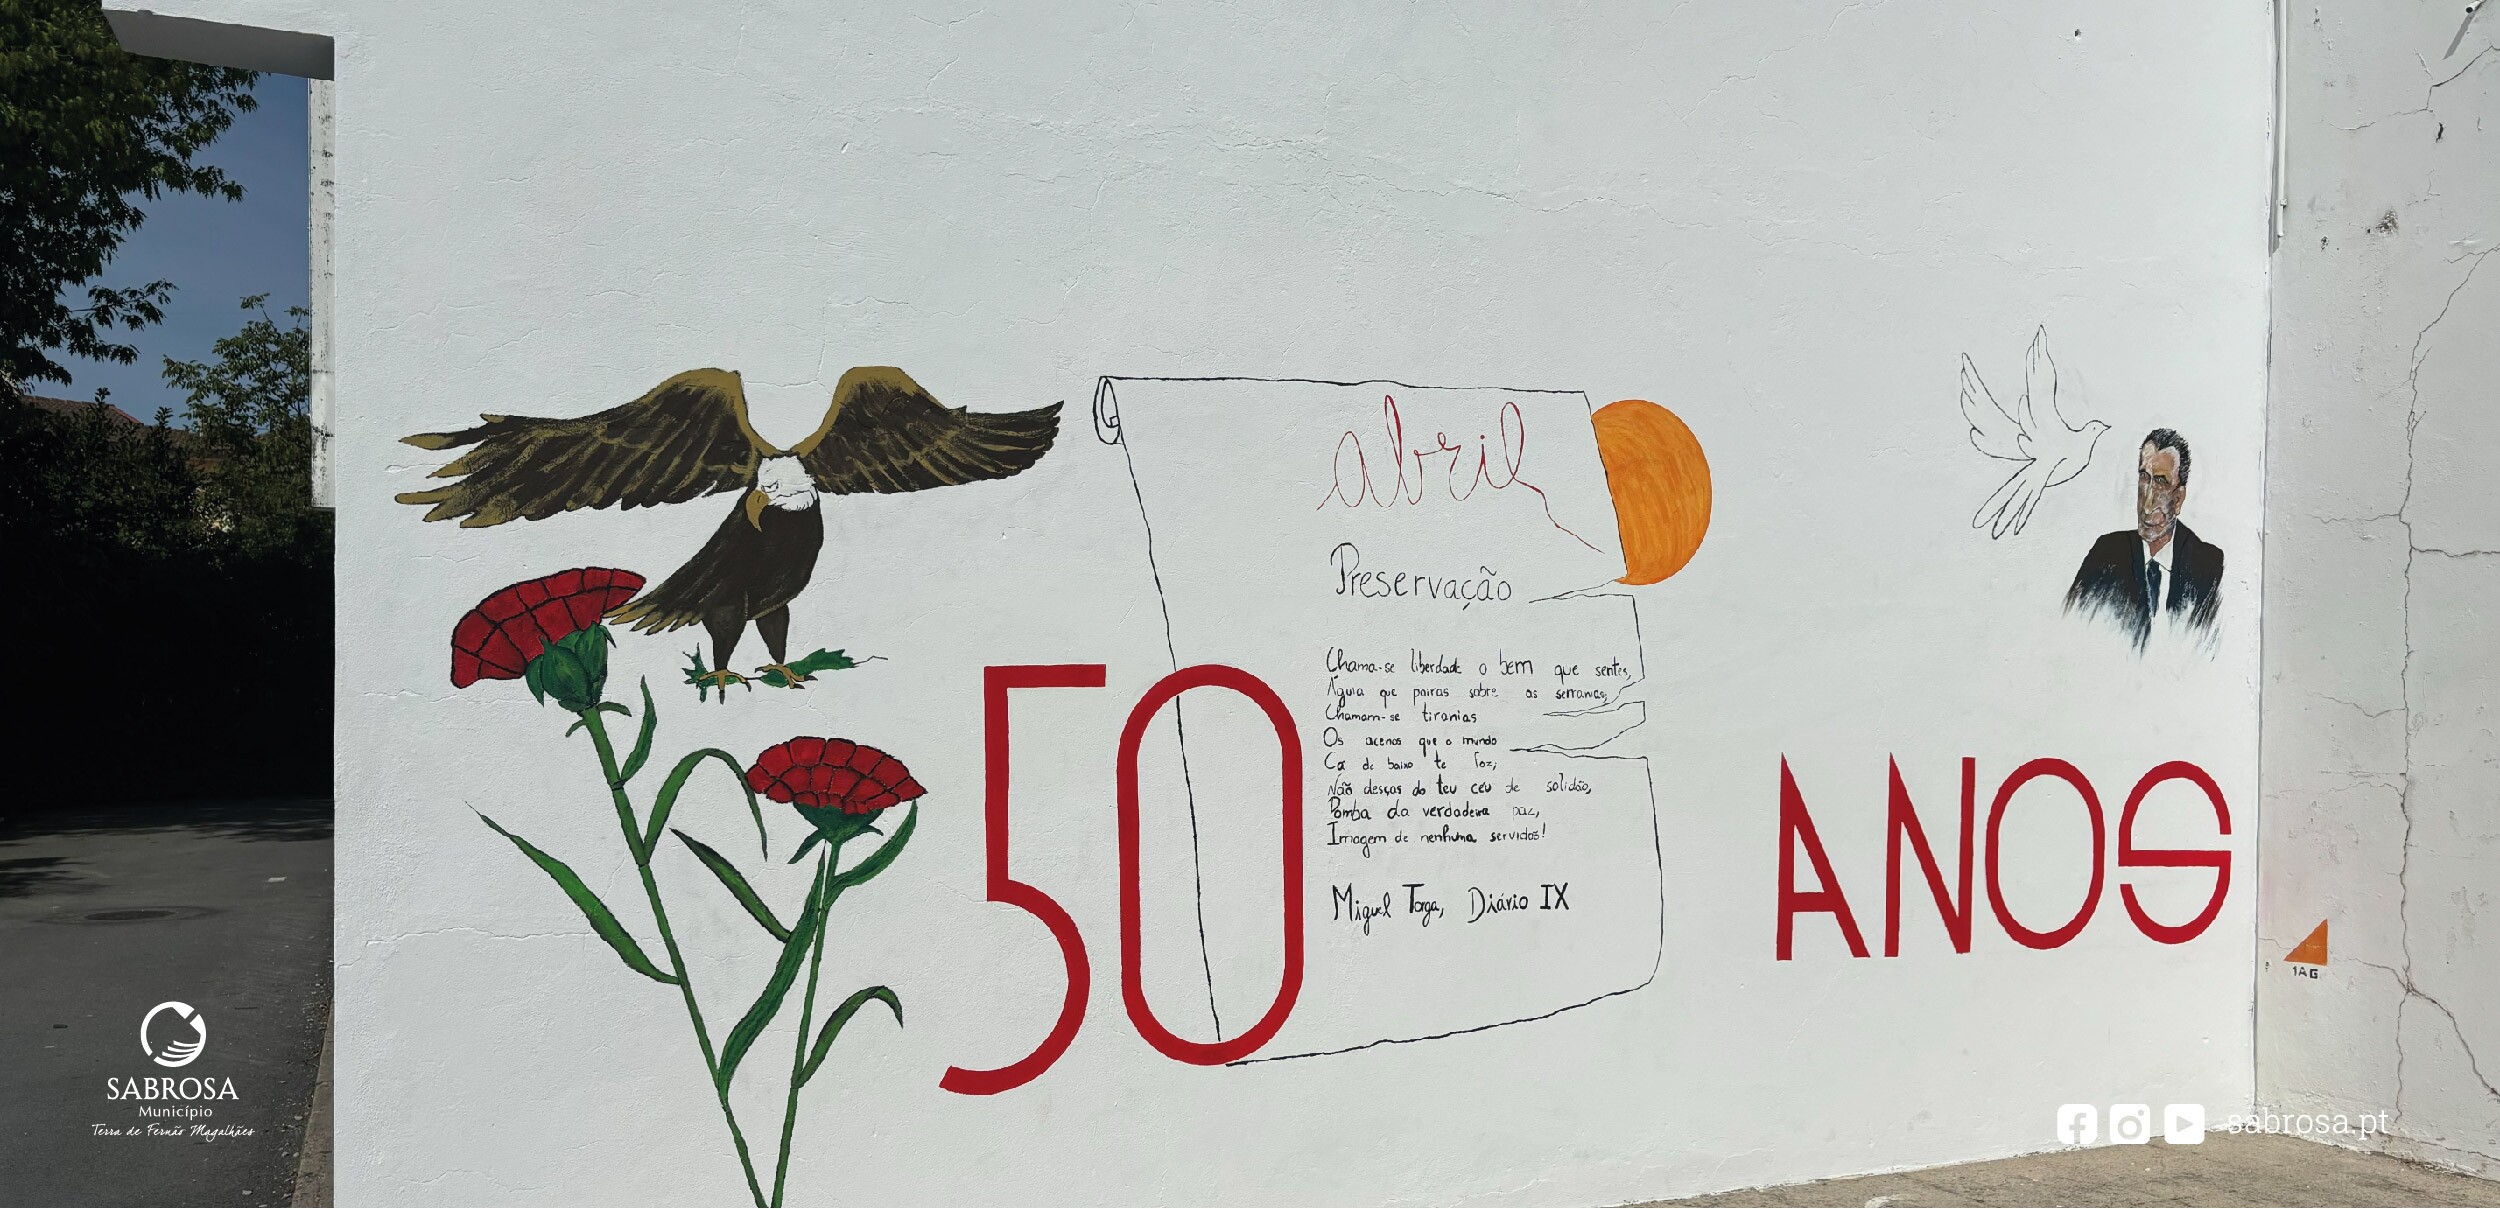 abril
Preservação
Chama-se liberdade o bem que sentes,
Águia que pairas sobre as serranias;
Chamam-se tiranias
Os acenos que o mundo
Cá de baixo te faz;
Não desças do teu céu de solidão,
Pomba da verdadeira paz,
Imagem de nenhuma servidão!
Miguel Torga, Diário IX
50 ANOS
1AG
SABROSA
Município
Terra de Fernão Magalhães
sabrosa.pt